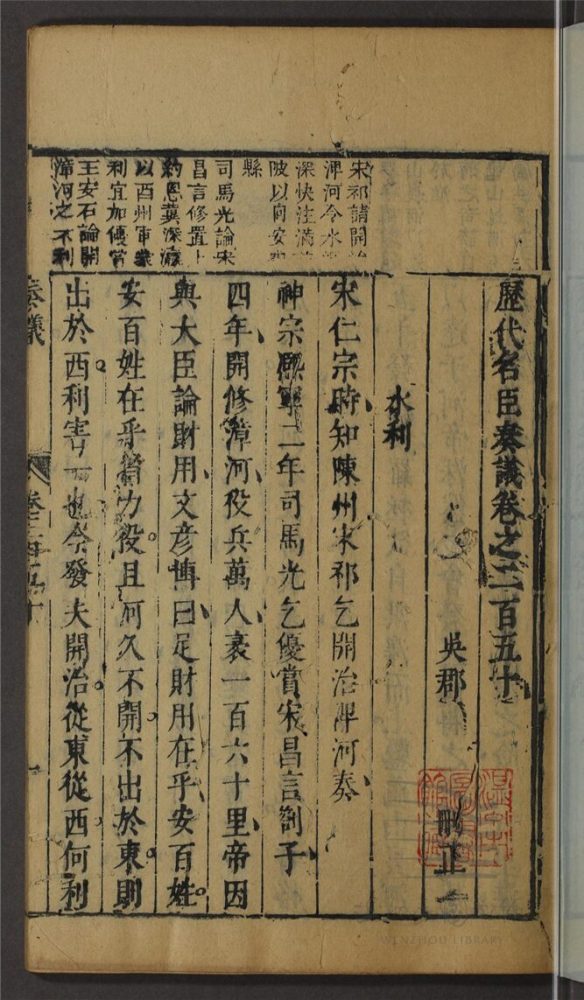 歷代名臣奏議卷之二百五十
吳郡 刪正
水利
宋仁宗時知陳州宋祁乞開治渒河奏
神宗熈寧二年司馬光乞優賞宋昌言劄子
四年開修漳河役兵萬人袤一百六十里帝因
與大臣論財用文彥博曰足財用在乎安百姓
安百姓在乎省力役且河久不開不出於東則
出於西利害一也今發夫開治從東從西何利
宋祁請開
渒河令水
深快注滿
陂以向安
縣
司馬光論宋
昌言修置上
約恩冀深瀛
以西州軍
利宜加優賞
王安石論開
漳河之不利
奏議
WENZHOU LIBRARY